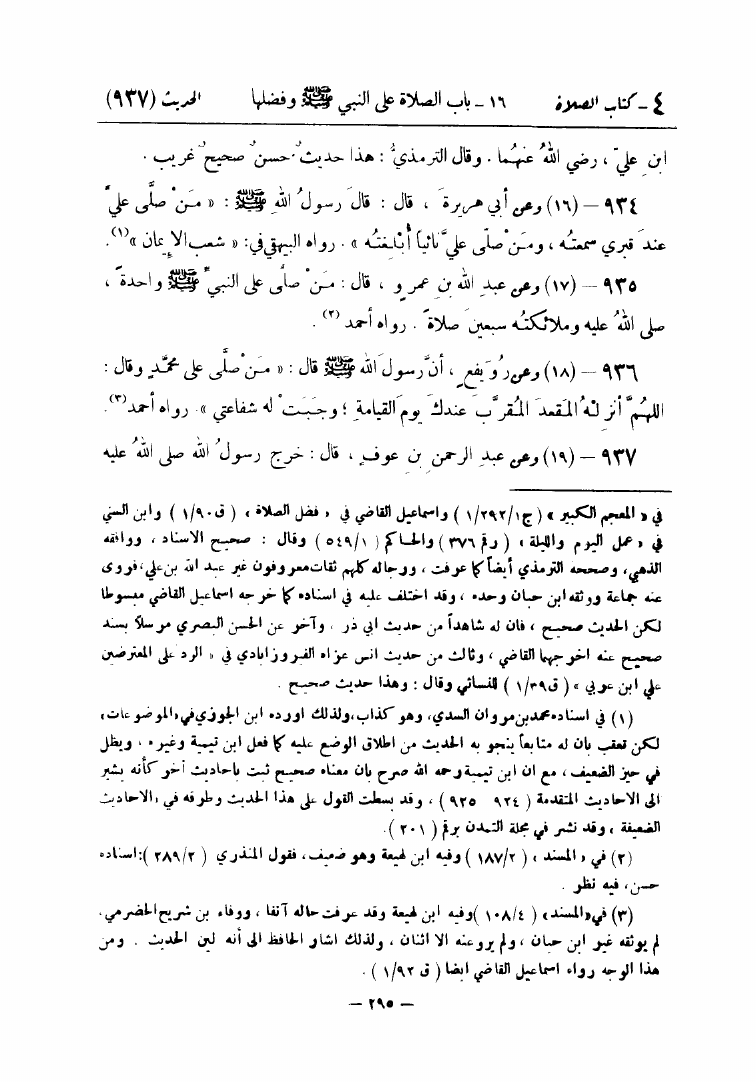 ٤ - كتاب الصلاة ١٦ - باب الصلاة على النبي ﷺ وفضلها الحديث (٩٣٧)
ابن عليّ ، رضي اللهُ عنهُما . وقال الترمذيُّ : هذا حديثٌ حسنٌ صحيحٌ غريب .
٩٣٤ – (١٦) وعن أبي هريرةَ ، قال : قالَ رسولُ اللهِ ﷺ : « مَنْ صلَّى عليَّ
عندَ قبري سمعتُه ، ومَنْ صلَّى عليَّ نائياً أُبْلِغتُه » . رواه البيهقي في : « شعب الإيمان » (١) .
٩٣٥ – (١٧) وعن عبدِ الله بنِ عمرٍو ، قال : مَنْ صلَّى على النبيِّ ﷺ واحدةً ،
صلى اللهُ عليه وملائكتُه سبعينَ صلاةً . رواه أحمد (٢) .
٩٣٦ – (١٨) وعن رُوَيفعٍ ، أنَّ رسولَ الله ﷺ قال : « مَنْ صلَّى على محمَّدٍ وقال :
اللهُمَّ أنزِلهُ المَقعدَ المُقرَّبَ عندكَ يومَ القيامةِ ؛ وجَبَتْ له شفاعتي » . رواه أحمد (٣) .
٩٣٧ – (١٩) وعن عبدِ الرحمنِ بنِ عوفٍ ، قال : خرج رسولُ الله صلى اللهُ عليه
في « المعجم الكبير » ( ج١/٢٩٢/١ ) واسماعيل القاضي في « فضل الصلاة » ( ق١/٩٠ ) وابن السني
في « عمل اليوم والليلة » ( رقم ٣٧٦ ) والحاكم ( ٥٤٩/١ ) وقال : صحيح الاسناد ، ووافقه
الذهبي، وصححه الترمذي أيضاً كما عرفت ، ورجاله كلهم ثقات معروفون غير عبد الله بن علي، فروى
عنه جماعة ووثقه ابن حبان وحده ، وقد اختلف عليه في اسناده كما خرجه اسماعيل القاضي مبسوطا
لكن الحديث صحيح ، فان له شاهداً من حديث ابي ذر . وآخر عن الحسن البصري مرسلاً بسند
صحيح عنه اخرجهما القاضي ، وثالث من حديث انس عزاه الفيروزابادي في « الرد على المعترضين
على ابن عربي » ( ق١/٣٩ ) للنسائي وقال : وهذا حديث صحيح .
(١) في اسناده محمد بن مروان السدي، وهو كذاب، ولذلك اورده ابن الجوزي في «الموضوعات»
لكن تعقب بان له متابعاً ينجو به الحديث من اطلاق الوضع عليه كما فعل ابن تيمية وغيره ، ويظل
في حيز الضعيف ، مع ان ابن تيمية رحمه الله صرح بان معناه صحيح ثبت باحاديث أخر كأنه يشير
الى الاحاديث المتقدمة ( ٩٢٤ ٩٢٥ ) ، وقد بسطت القول على هذا الحديث وطرقه في «الاحاديث
الضعيفة ، وقد نشر في مجلة التمدن برقم ( ٢٠١ ) .
(٢) في « المسند » ( ١٨٧/٢ ) وفيه ابن لهيعة وهو ضعيف، فقول المنذري ( ٢٨٩/٢ ): اسناده
حسن، فيه نظر .
(٣) في «المسند» ( ١٠٨/٤ ) وفيه ابن لهيعة وقد عرفت حاله آنفا ، ووفاء بن شريح الحضرمي،
لم يوثقه غير ابن حبان ، ولم يرو عنه الا اثنان ، ولذلك اشار الحافظ الى أنه لين الحديث . ومن
هذا الوجه رواه اسماعيل القاضي ايضا ( ق ١/٩٢ ) .
– ٢٩٥ –